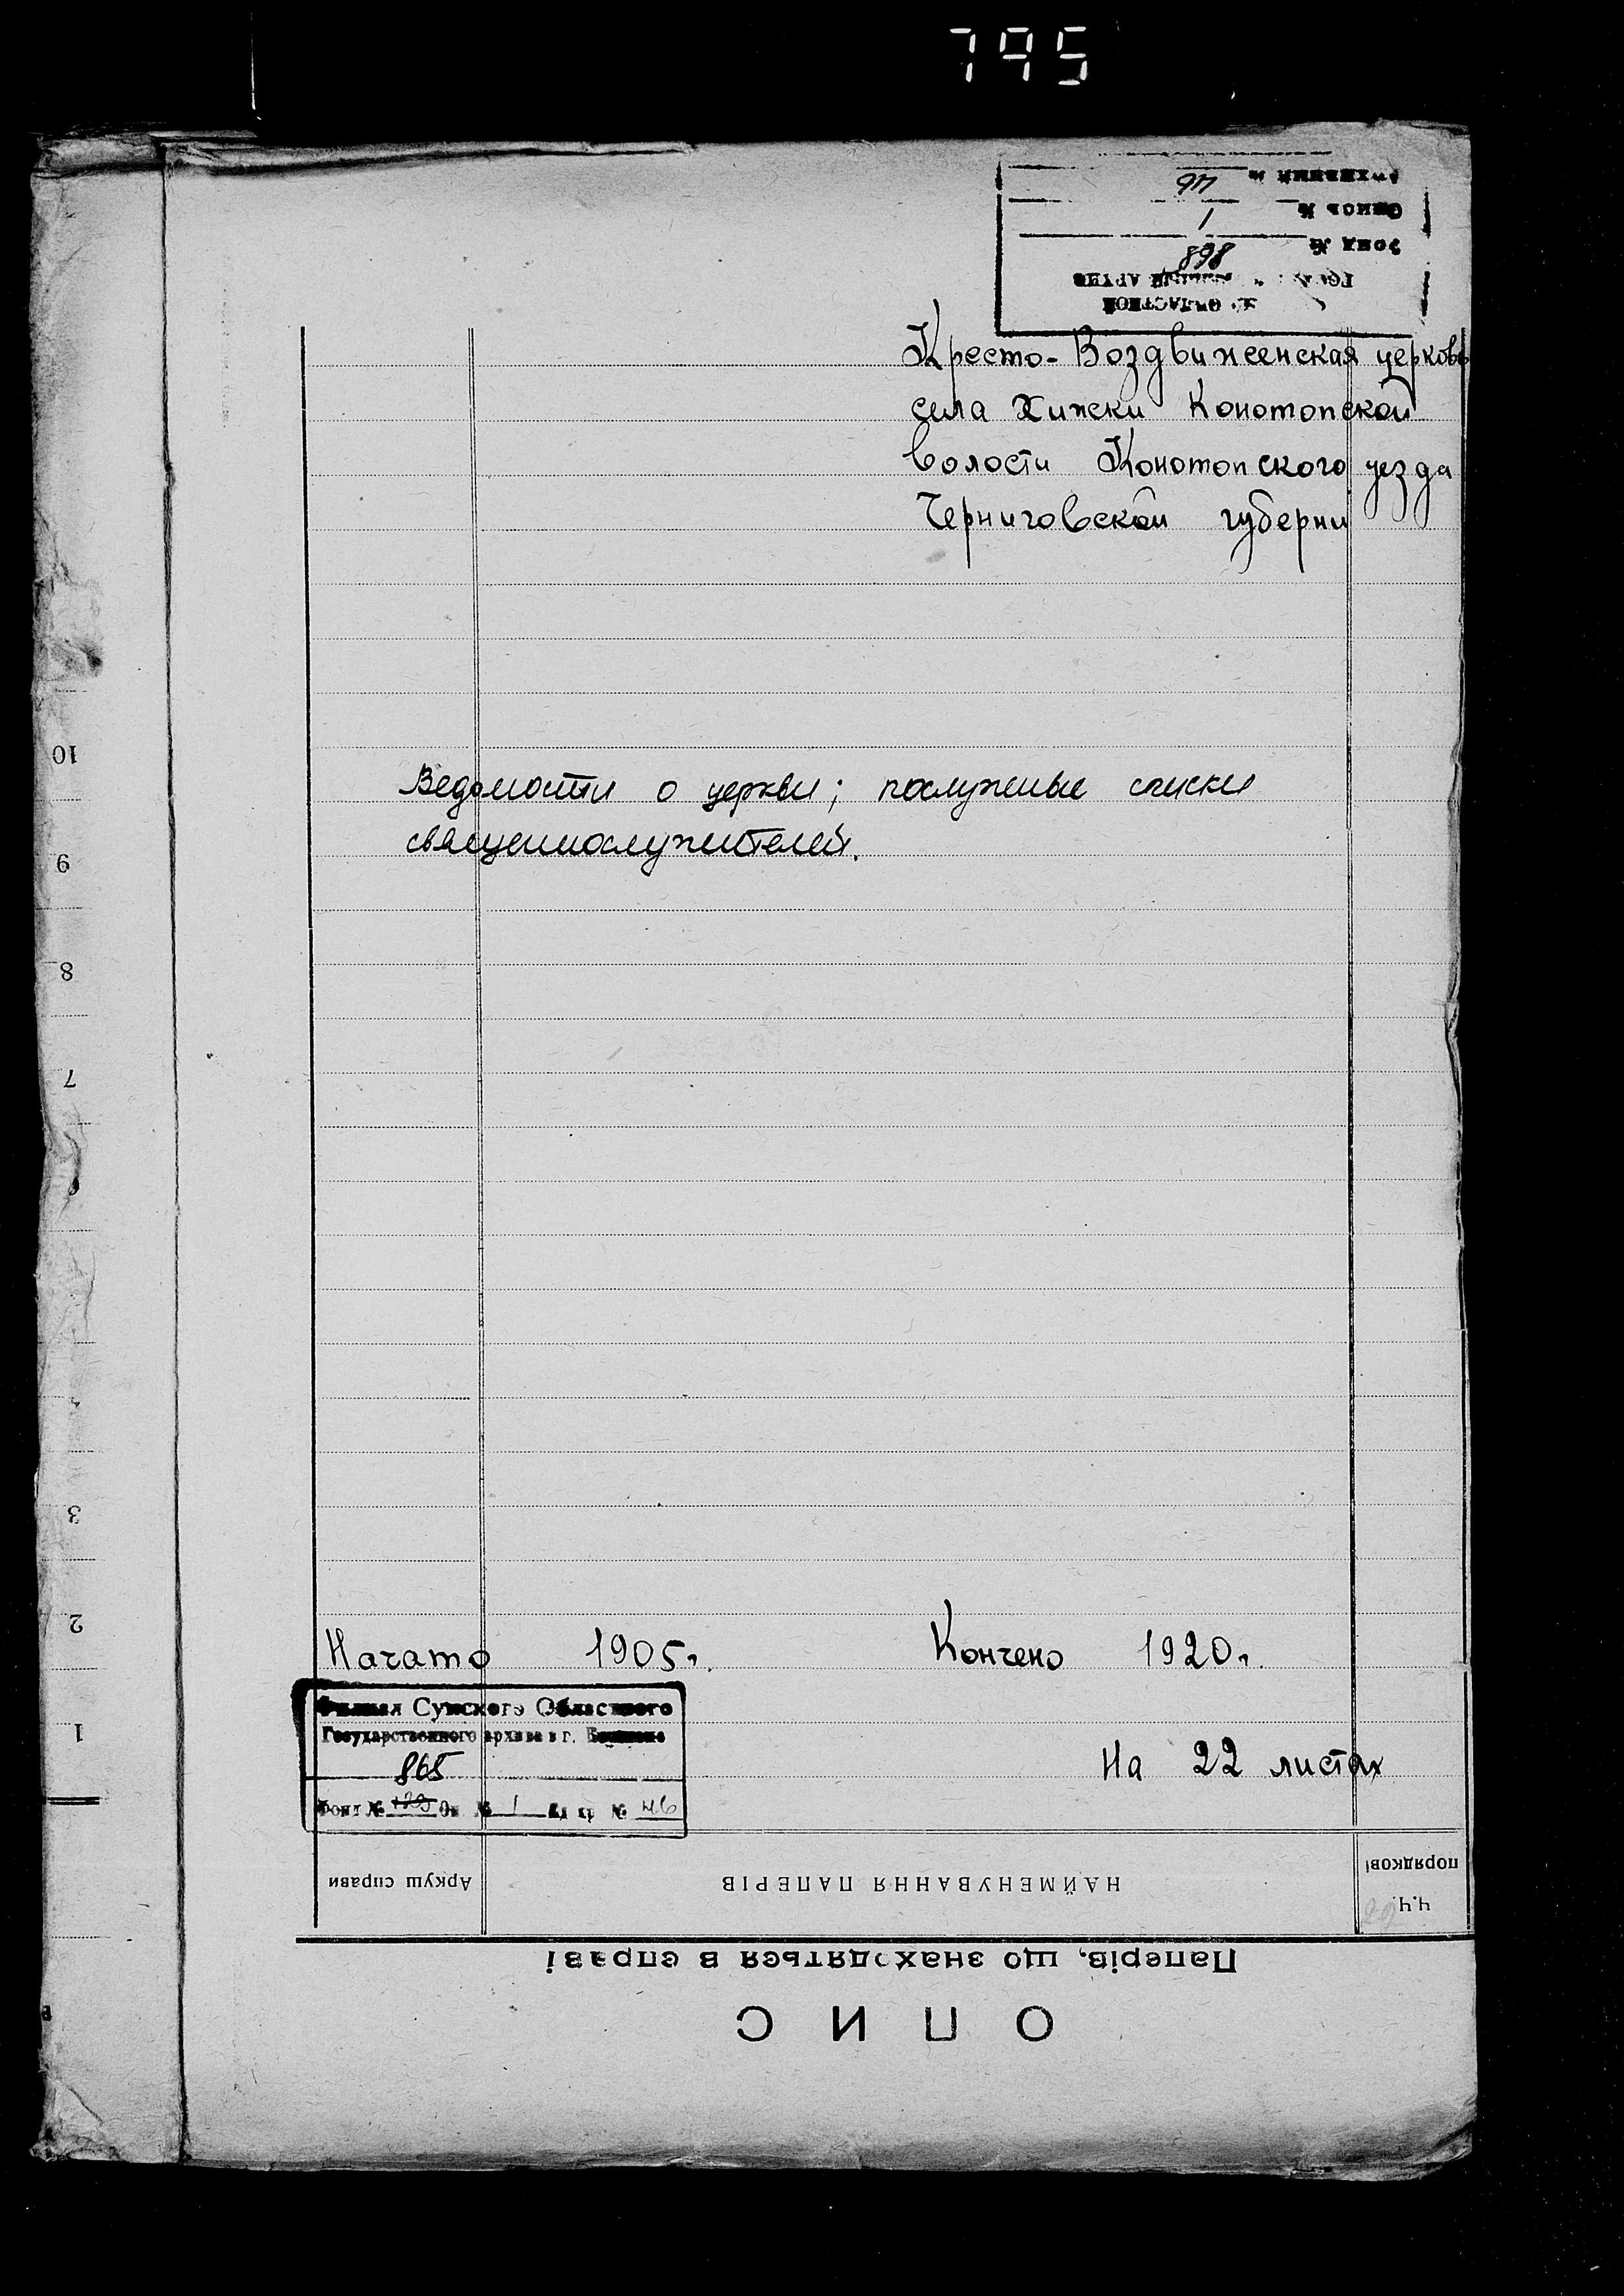 795
46
Опись № 1
Фонд № 898
ОБЛАСТНОЙ
Кресто-Воздвиженская церковь
села Хижки Конотопской
волости Конотопского уезда
Черниговской губерни
10
Ведомости о церкви; послужные списки
священнослужителей.
9
8
7
3
2
Начато 1905г. Кончено 1920г.
1
Филиал Сумского Областного
Государственного архива в г.
865
Фонд № Оп № 1 Ед хр № 46
На 22 листах
Аркуш справи
НАЙМЕНУВАННЯ ПАПЕРІВ
Ч.Ч.
порядкові
Паперів, що знаходяться в справі
ОПИС